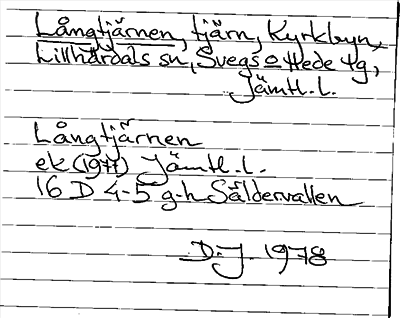 Långtjärnen, tjärn, Kyrkbyn,
Lillhärdals sn, Svegs o Hede tg,
Jämtl. l.
Långtjärnen
ek (1977) Jämtl. l.
16 D 4-5 g-h Säldervallen
D. J. 1978